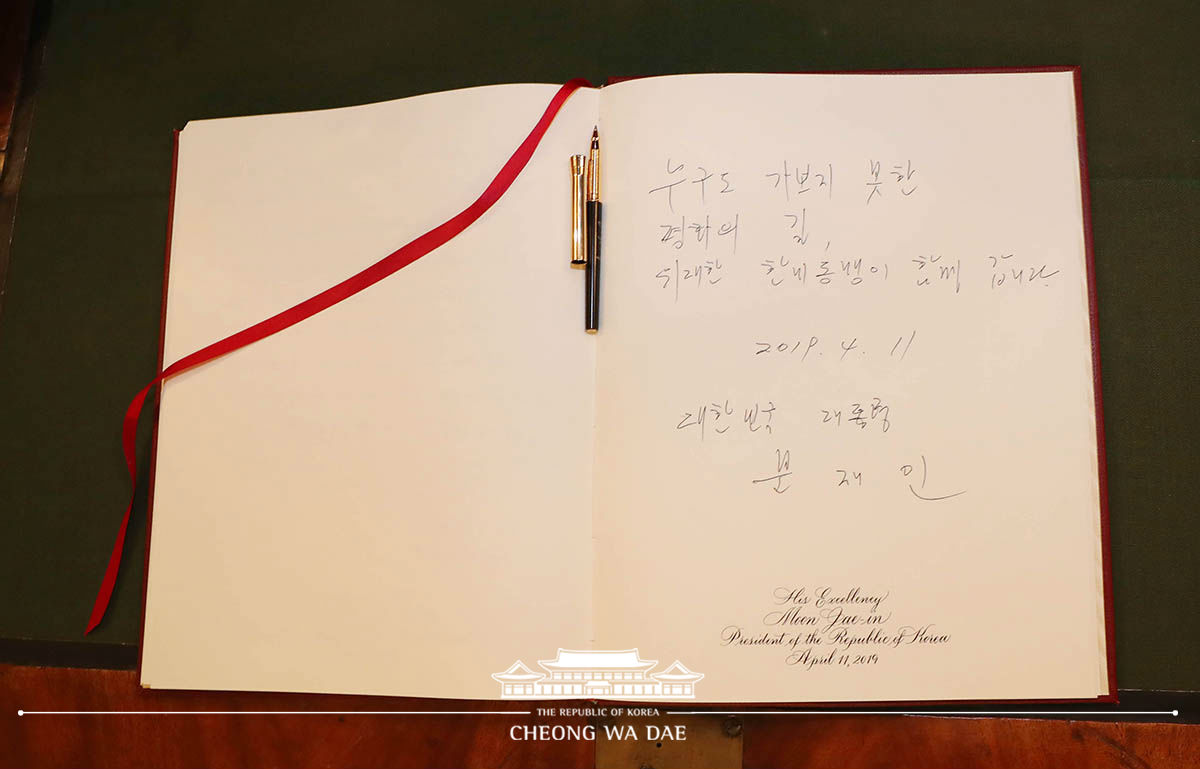 누구도 가보지 못한
평화의 길,
위대한 한미동맹이 함께 갑니다.
2019. 4. 11
대한민국 대통령
문 재 인
His Excellency
Moon Jae-in
President of the Republic of Korea
April 11, 2019
THE REPUBLIC OF KOREA
CHEONG WA DAE